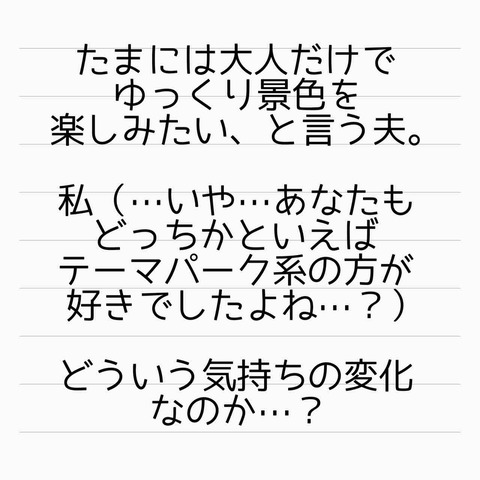 たまには大人だけで
ゆっくり景色を
楽しみたい、と言う夫。
私（…いや…あなたも
どっちかといえば
テーマパーク系の方が
好きでしたよね…？）
どういう気持ちの変化
なのか…？